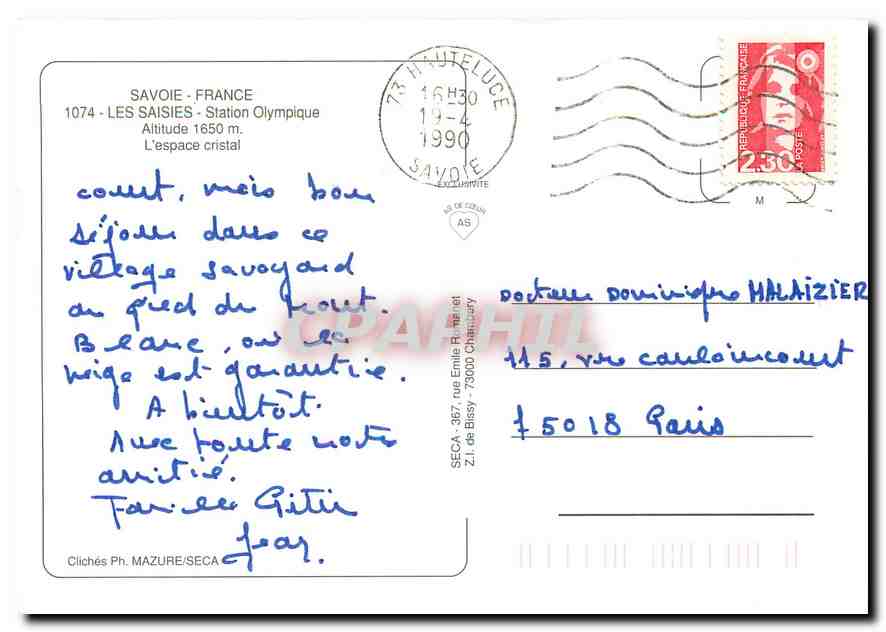 SAVOIE - FRANCE
1074 - LES SAISIES - Station Olympique
Altitude 1650 m.
L'espace cristal
73 HAUTELUCE
16H30
19-4
1990
SAVOIE
REPUBLIQUE FRANÇAISE
LA POSTE
2,30
M
EXCLUSIVITE
AS DE CŒUR
AS
court, mais bon
séjour dans ce
village savoyard
au pied du Mont.
Blanc, où la
neige est garantie.
A bientôt.
Avec toute notre
amitié.
Famille
Jean.
SECA - 367, rue Emile Romanet
Z.I. de Bissy - 73000 Chambéry
Docteur Dominique MALAIZIER
115, rue caulaincourt
75018 Paris
Clichés Ph. MAZURE/SECA
CPAPHIL